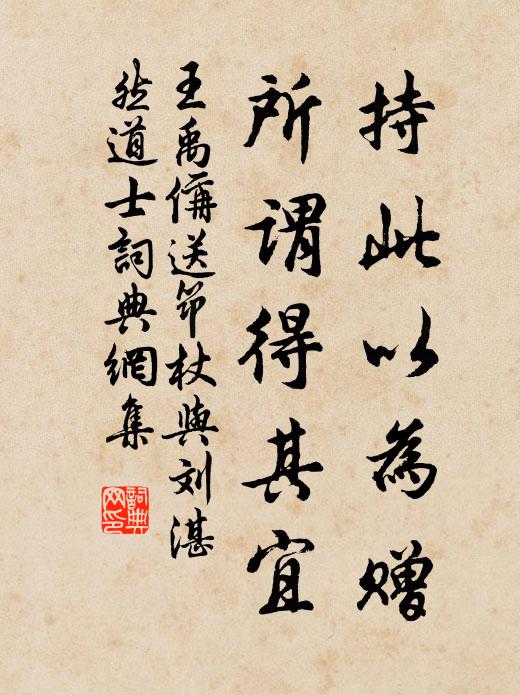 持此以為赠
所谓得其宜
王禹偁送笻杖與刘湛
然道士詞典網集
詞典
网印